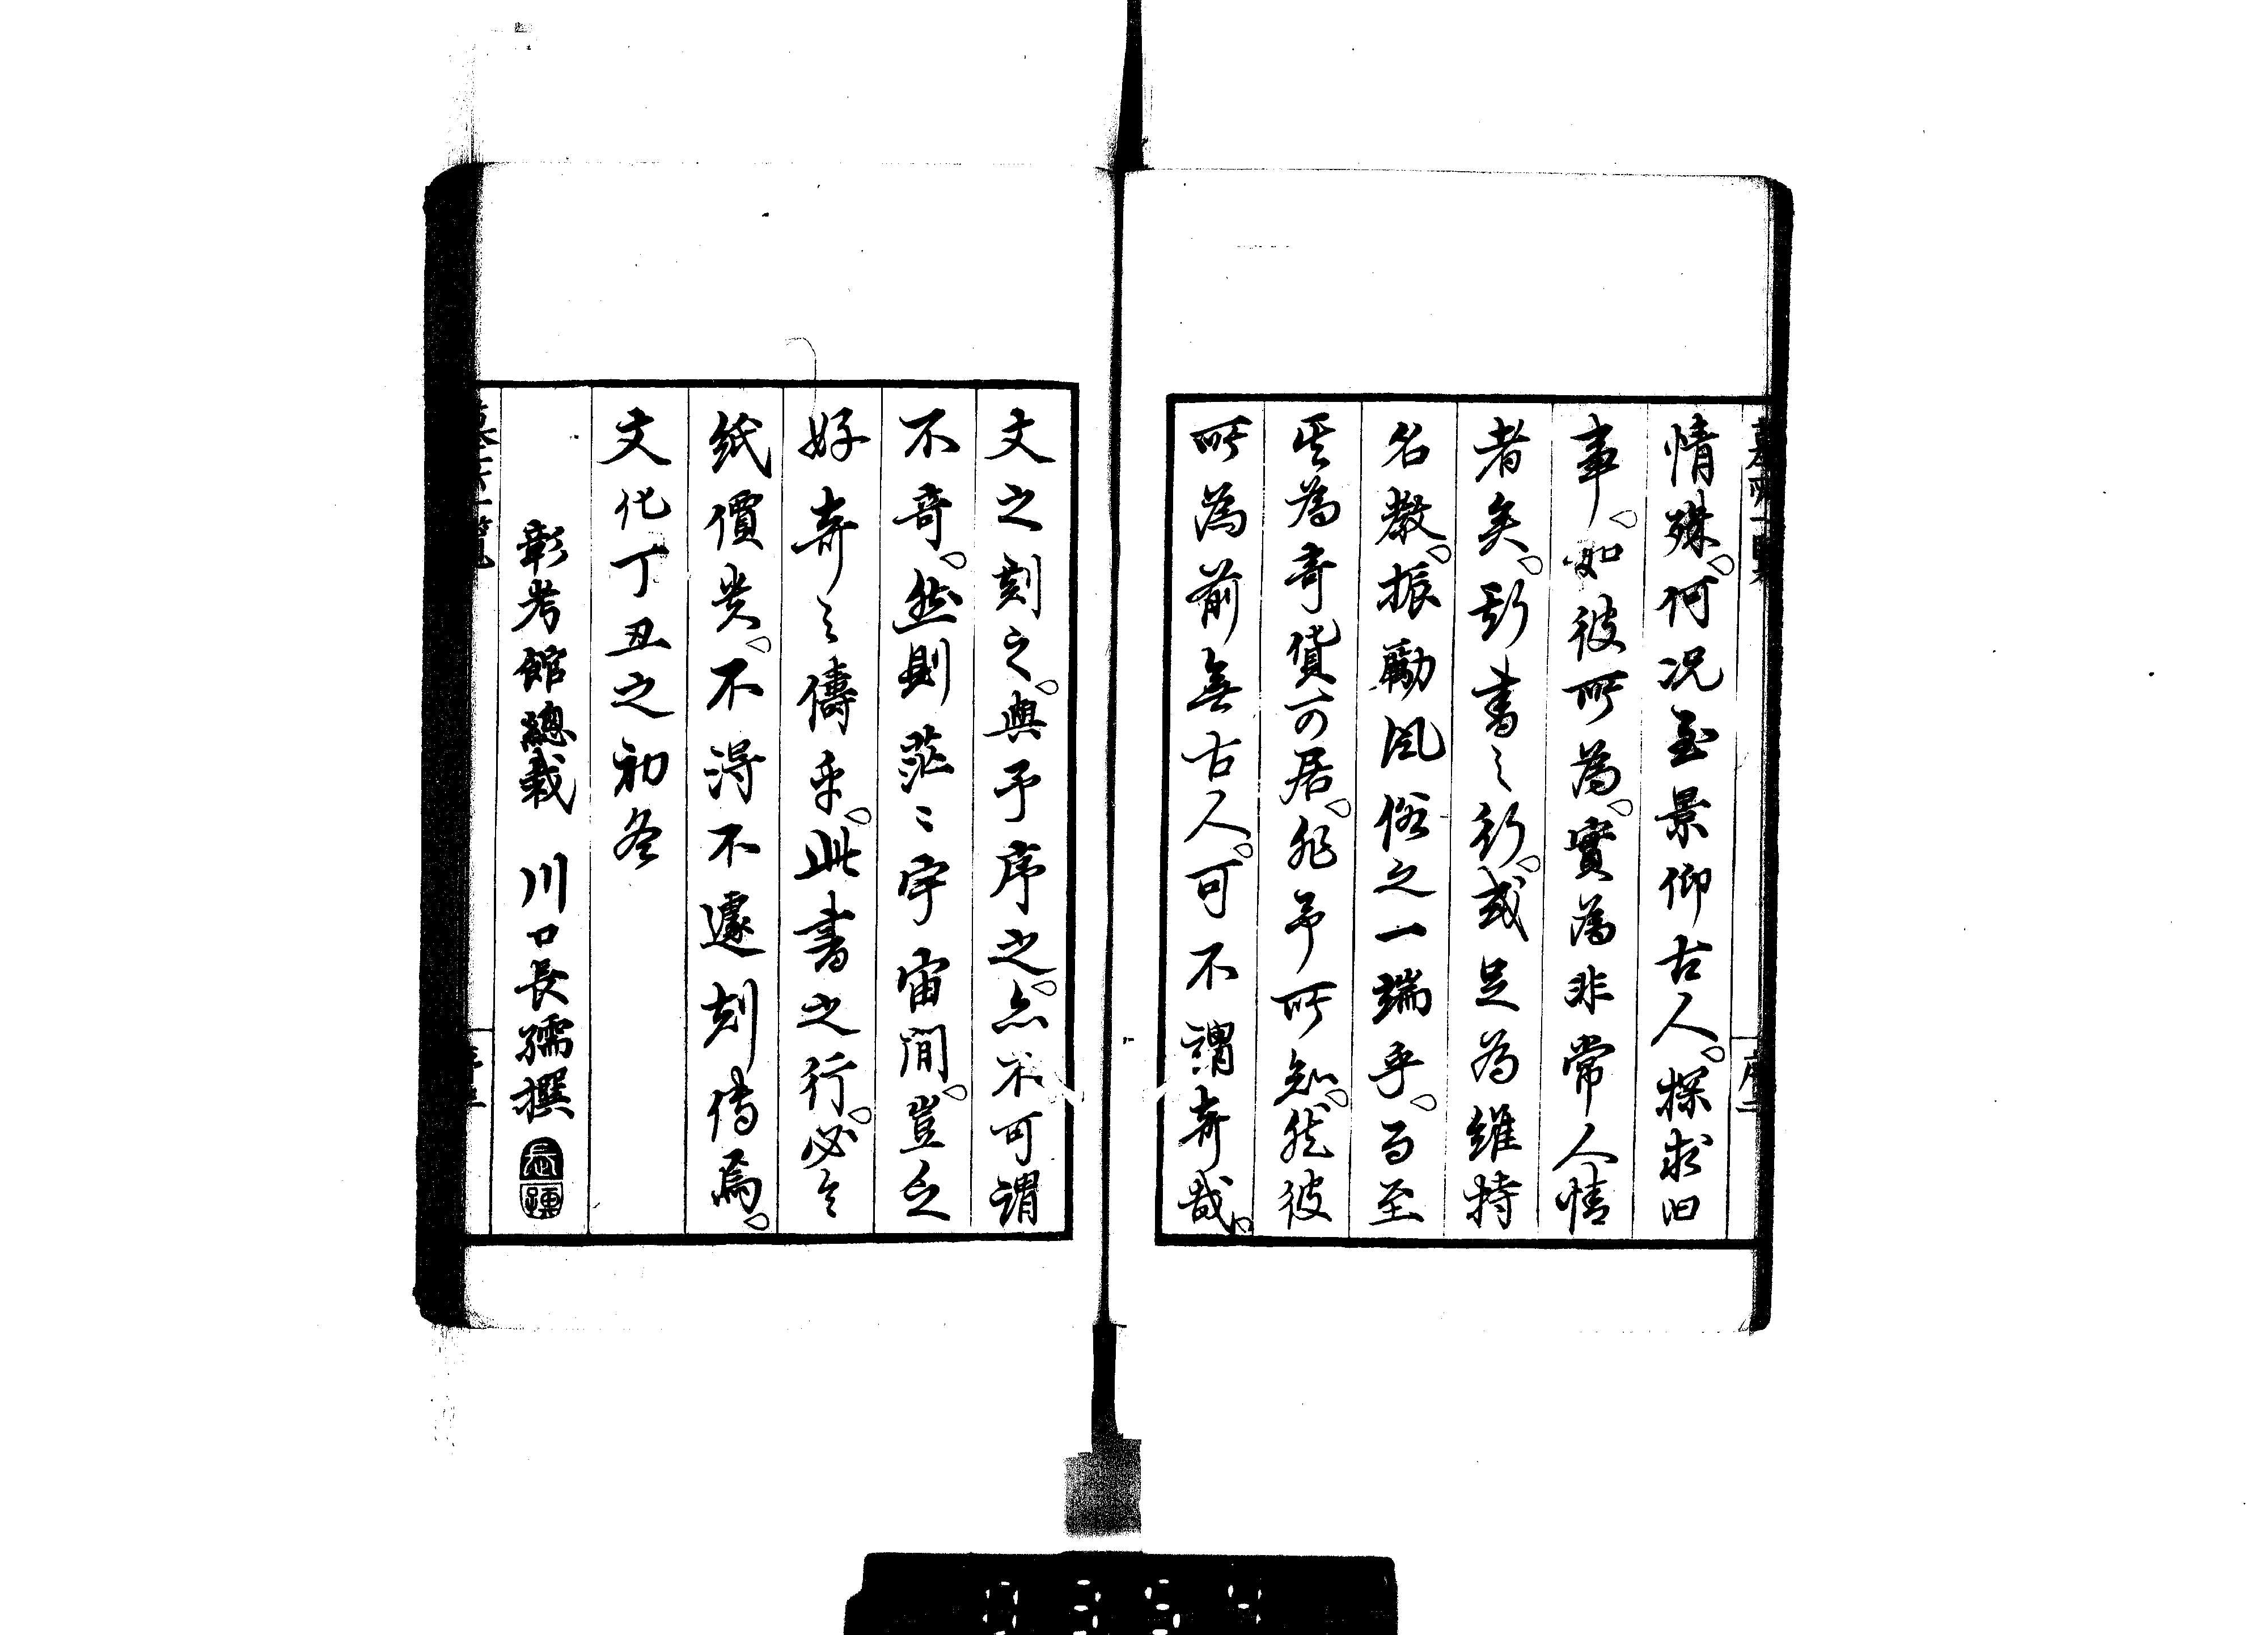 情殊。何况至景仰古人。探求旧
事。如彼所為。實為非常人情
者矣。斯書之行。或足為維持
名教。振勵風俗之一端乎。為至
其為奇貨可居。非予所知。然彼
所為前無古人。可不謂奇哉。
文之刻之。與予序之。亦不可謂
不奇。然則茫〻宇宙間。豈乏
好奇之儔乎。此書之行。必令
紙價貴。不得不遽刻傳焉。
文化丁丑之初冬
彰考館總裁　川口長孺撰